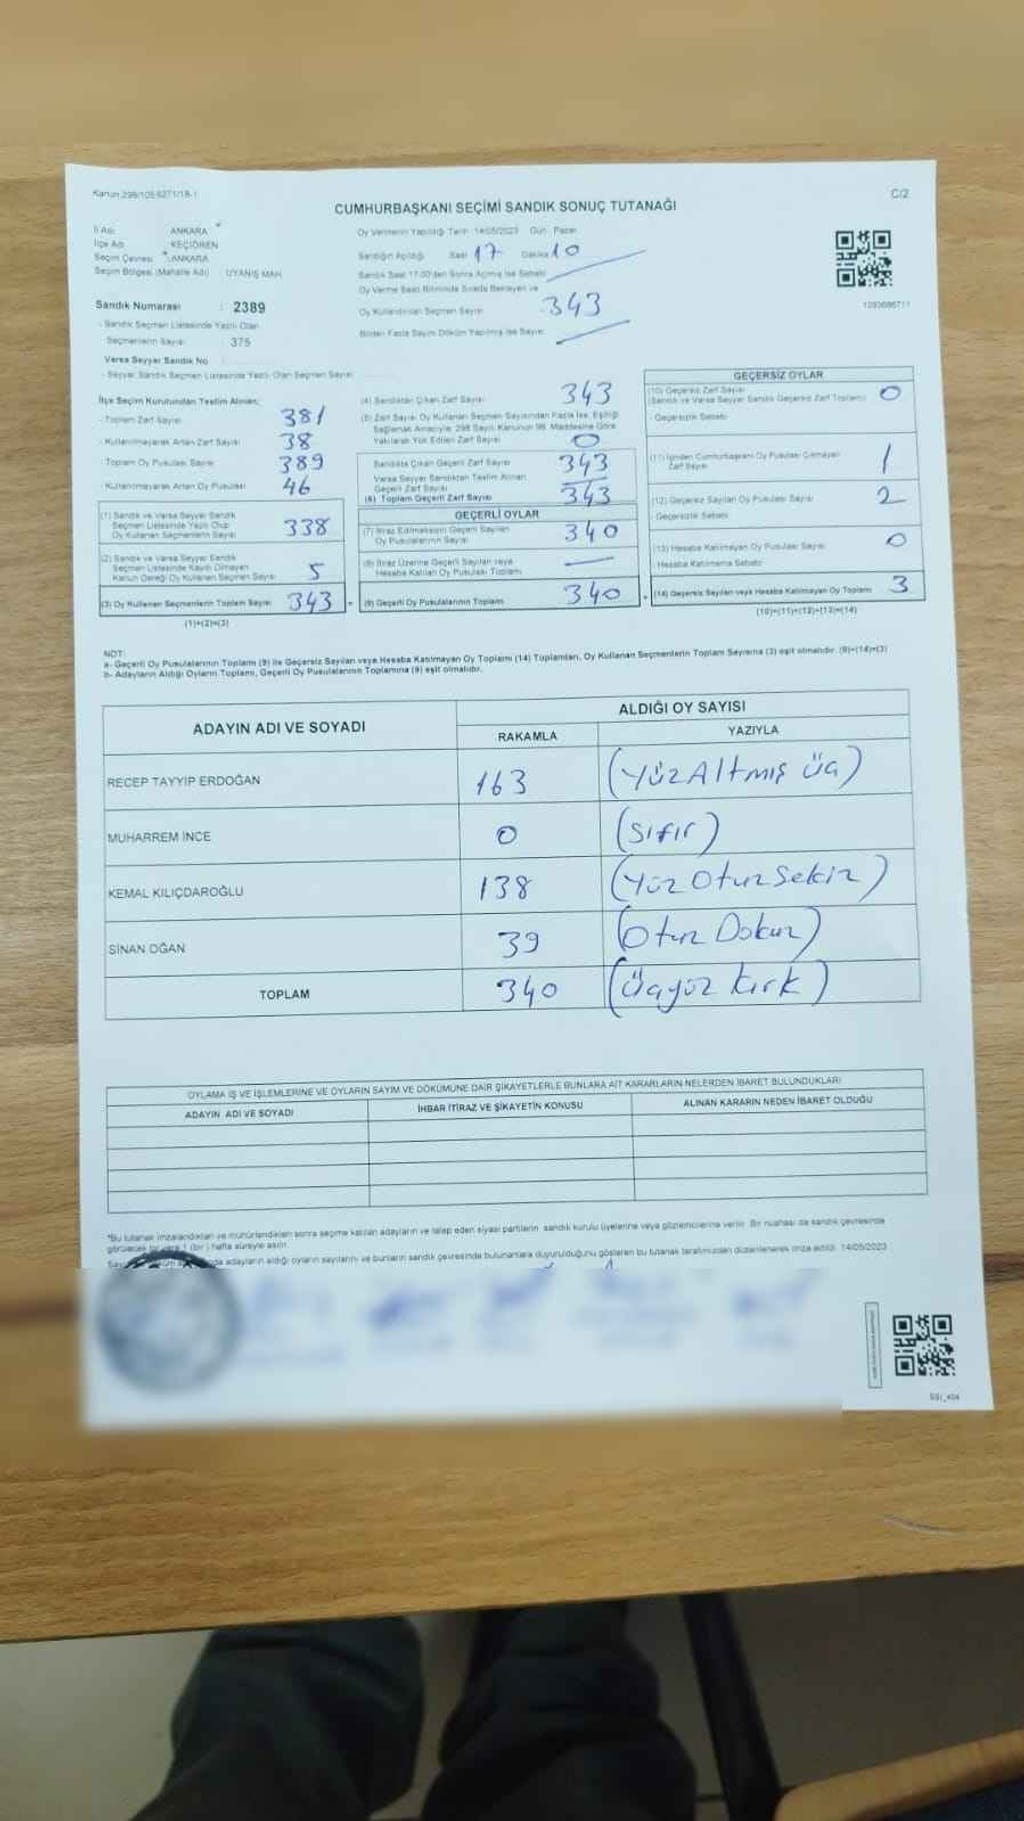 Kanun 298/105-6271/18-1
C/2
CUMHURBAŞKANI SEÇİMİ SANDIK SONUÇ TUTANAĞI
İl Adı : ANKARA
İlçe Adı : KEÇİÖREN
Seçim Çevresi : ANKARA
Seçim Bölgesi (Mahalle Adı) : UYANIŞ MAH.
Sandık Numarası : 2389
- Sandık Seçmen Listesinde Yazılı Olan
Seçmenlerin Sayısı : 375
Varsa Seyyar Sandık No
- Seyyar Sandık Seçmen Listesinde Yazılı Olan Seçmen Sayısı
Oy Vermenin Yapıldığı Tarih : 14/05/2023 Gün : Pazar
Sandığın Açıldığı Saat 17 Dakika 10
Sandık Saat 17.00'den Sonra Açılmış İse Sebebi
Oy Verme Saati Bitiminde Sırada Bekleyen ve
Oy Kullandırılan Seçmen Sayısı 343
Birden Fazla Sayım Döküm Yapılmış İse Sayısı
1093686711
İlçe Seçim Kurulundan Teslim Alınan;
- Toplam Zarf Sayısı 381
- Kullanılmayarak Artan Zarf Sayısı 38
- Toplam Oy Pusulası Sayısı 389
- Kullanılmayarak Artan Oy Pusulası 46
(1) Sandık ve Varsa Seyyar Sandık
Seçmen Listesinde Yazılı Olup
Oy Kullanan Seçmenlerin Sayısı 338
(2) Sandık ve Varsa Seyyar Sandık
Seçmen Listesinde Kayıtlı Olmayan
Kanun Gereği Oy Kullanan Seçmen Sayısı 5
(3) Oy Kullanan Seçmenlerin Toplam Sayısı 343
(1)+(2)=(3)
(4) Sandıktan Çıkan Zarf Sayısı 343
(5) Zarf Sayısı Oy Kullanan Seçmen Sayısından Fazla İse, Eşitliği
Sağlamak Amacıyla, 298 Sayılı Kanunun 98. Maddesine Göre
Yakılarak Yok Edilen Zarf Sayısı 0
Sandıkta Çıkan Geçerli Zarf Sayısı 343
Varsa Seyyar Sandıktan Teslim Alınan
Geçerli Zarf Sayısı
(6) Toplam Geçerli Zarf Sayısı 343
GEÇERLİ OYLAR
(7) İtiraz Edilmeksizin Geçerli Sayılan
Oy Pusulalarının Sayısı 340
(8) İtiraz Üzerine Geçerli Sayılan veya
Hesaba Katılan Oy Pusulası Toplamı
(9) Geçerli Oy Pusulalarının Toplamı 340
GEÇERSİZ OYLAR
(10) Geçersiz Zarf Sayısı
(Sandık ve Varsa Seyyar Sandık Geçersiz Zarf Toplamı) 0
- Geçersizlik Sebebi
(11) İçinden Cumhurbaşkanı Oy Pusulası Çıkmayan
Zarf Sayısı 1
(12) Geçersiz Sayılan Oy Pusulası Sayısı 2
- Geçersizlik Sebebi
(13) Hesaba Katılmayan Oy Pusulası Sayısı 0
Hesaba Katılmama Sebebi
(14) Geçersiz Sayılan veya Hesaba Katılmayan Oy Toplamı 3
(10)+(11)+(12)+(13)=(14)
NOT:
a- Geçerli Oy Pusulalarının Toplamı (9) ile Geçersiz Sayılan veya Hesaba Katılmayan Oy Toplamı (14) Toplamları, Oy Kullanan Seçmenlerin Toplam Sayısına (3) eşit olmalıdır. (9)+(14)=(3)
b- Adayların Aldığı Oyların Toplamı, Geçerli Oy Pusulalarının Toplamına (9) eşit olmalıdır.
ADAYIN ADI VE SOYADI
ALDIĞI OY SAYISI
RAKAMLA YAZIYLA
RECEP TAYYİP ERDOĞAN 163 (YüzAltmış üç)
MUHARREM İNCE 0 (Sıfır)
KEMAL KILIÇDAROĞLU 138 (Yüz Otuz Sekiz)
SİNAN OĞAN 39 (Otuz Dokuz)
TOPLAM 340 (Üçyüz kırk)
OYLAMA İŞ VE İŞLEMLERİNE VE OYLARIN SAYIM VE DÖKÜMÜNE DAİR ŞİKAYETLERLE BUNLARA AİT KARARLARIN NELERDEN İBARET BULUNDUKLARI
ADAYIN ADI VE SOYADI İHBAR İTİRAZ VE ŞİKAYETİN KONUSU ALINAN KARARIN NEDEN İBARET OLDUĞU
*Bu tutanak imzalandıktan ve mühürlendikten sonra seçime katılan adayların ve talep eden siyasi partilerin sandık kurulu üyelerine veya gözlemcilerine verilir. Bir nüshası da sandık çevresinde
görülecek bir yere 1 (bir) hafta süreyle asılır.
adayların aldığı oyların sayılarını ve bunların sandık çevresinde bulunanlara duyurulduğunu gösteren bu tutanak tarafımızdan düzenlenerek imza edildi. 14/05/2023